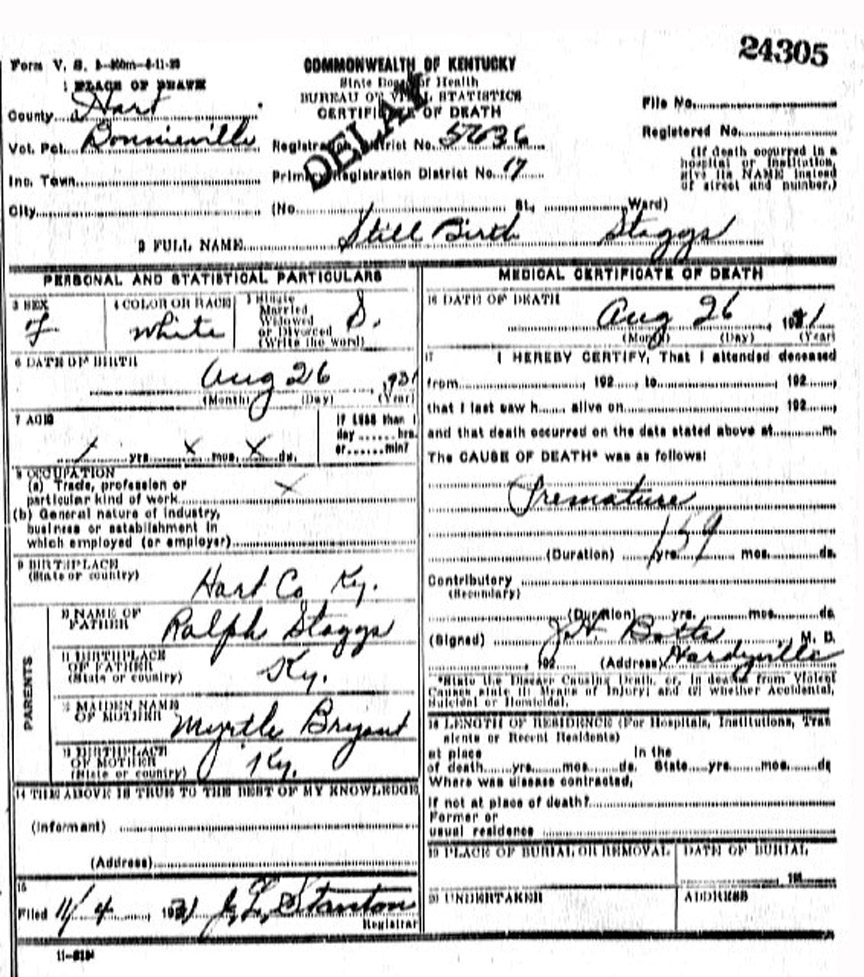 24305
Form V. S.
COMMONWEALTH OF KENTUCKY
State Board of Health
BUREAU OF VITAL STATISTICS
CERTIFICATE OF DEATH
DELAY
1 PLACE OF DEATH
County Hart
Vot. Pct. Bonnieville
Inc. Town
City
Registration District No. 5636
Primary Registration District No. 17
(No. St., Ward)
File No.
Registered No.
(If death occurred in a
hospital or institution,
give its NAME instead
of street and number.)
2 FULL NAME Still Birth Staggs
PERSONAL AND STATISTICAL PARTICULARS
3 SEX
f
4 COLOR OR RACE
white
5 Single
Married
Widowed
or Divorced
(Write the word)
S.
6 DATE OF BIRTH
Aug 26, 1931
(Month) (Day) (Year)
7 AGE
x yrs. x mos. x ds.
If LESS than 1
day hrs.
or min?
8 OCCUPATION
(a) Trade, profession or
particular kind of work x
(b) General nature of industry,
business or establishment in
which employed (or employer)
9 BIRTHPLACE
(State or country)
Hart Co Ky.
PARENTS
10 NAME OF
FATHER
Ralph Staggs
11 BIRTHPLACE
OF FATHER
(State or country)
Ky.
12 MAIDEN NAME
OF MOTHER
Myrtle Bryant
13 BIRTHPLACE
OF MOTHER
(State or country)
Ky.
14 THE ABOVE IS TRUE TO THE BEST OF MY KNOWLEDGE
(Informant)
(Address)
15
Filed 11/4, 1931 J. L. Stanton
Registrar
11-
MEDICAL CERTIFICATE OF DEATH
16 DATE OF DEATH
Aug 26, 1931
(Month) (Day) (Year)
17 I HEREBY CERTIFY, That I attended deceased
from , 192 , to , 192 ,
that I last saw h alive on , 192 ,
and that death occurred on the date stated above at m.
The CAUSE OF DEATH* was as follows:
Premature
159
(Duration) yrs. mos. ds.
Contributory
(Secondary)
(Duration) yrs. mos. ds.
(Signed) J. H. Botts M. D.
, 192 (Address) Hardyville
*State the Disease Causing Death, or, in deaths from Violent
Causes state (1) Means of Injury; and (2) whether Accidental,
Suicidal or Homicidal.
18 LENGTH OF RESIDENCE (For Hospitals, Institutions, Tran
sients or Recent Residents)
at place In the
of death yrs. mos. ds. State yrs. mos. ds
Where was disease contracted,
If not at place of death?
Former or
usual residence
19 PLACE OF BURIAL OR REMOVAL
DATE OF BURIAL
20 UNDERTAKER
ADDRESS